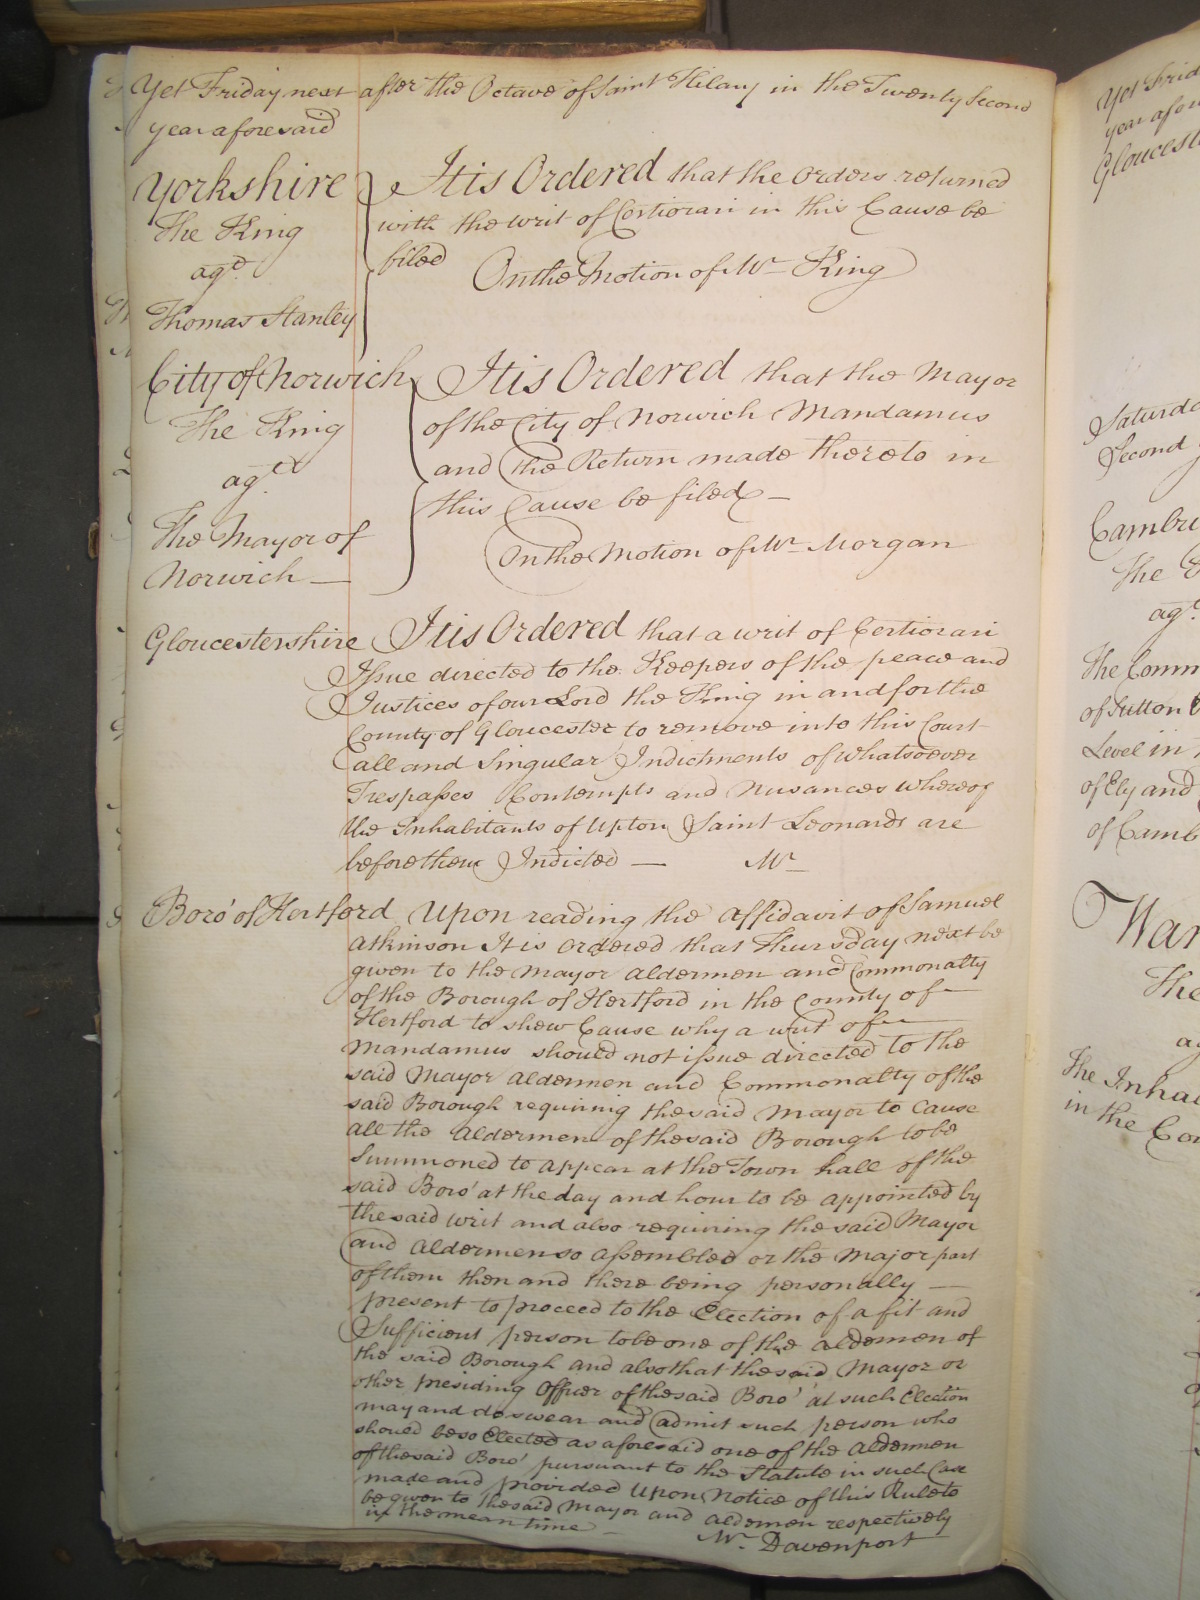 Yet Friday next after the Octave of Saint Hilary in the Twenty Second
year aforesaid
Yorkshire
The King
agt.
Thomas Stanley
It is Ordered that the orders returned
with the writ of Certiorari in this Cause be
filed
On the Motion of Mr. King
City of Norwich
The King
agt.
The Mayor of
Norwich
It is Ordered that the Mayor
of the City of Norwich Mandamus
and the Return made thereto in
this Cause be filed
On the Motion of Mr. Morgan
Gloucestershire It is Ordered that a writ of Certiorari
Issue directed to the Keepers of the peace and
Justices of our Lord the King in and for the
County of Gloucester to remove into this Court
all and Singular Indictments of whatsoever
Trespasses Contempts and Nusances whereof
the Inhabitants of Upton Saint Leonards are
before them Indicted — Mr.
Boro' of Hertford Upon reading the Affidavit of Samuel
Atkinson It is ordered that Thursday next be
given to the Mayor Aldermen and Commonalty
of the Borough of Hertford in the County of
Hertford to shew Cause why a writ of
Mandamus should not issue directed to the
said Mayor Aldermen and Commonalty of the
said Borough requiring the said Mayor to Cause
all the Aldermen of the said Borough to be
Summoned to appear at the Town hall of the
said Boro' at the day and hour to be appointed by
the said writ and also requiring the said Mayor
and Aldermen so assembled or the Major part
of them then and there being personally —
present to proceed to the Election of a fit and
Sufficient person to be one of the Aldermen of
the said Borough and also that the said Mayor or
other presiding Officer of the said Boro' at such Election
may and do swear and admit such person who
should be so Elected as aforesaid one of the Aldermen
of the said Boro' pursuant to the Statute in such Case
made and provided Upon Notice of this Rule to
be given to the said Mayor and Aldermen respectively
in the mean time —
Mr. Davenport
year afore
Gloucest
Saturda
Second
Cambri
The
agt.
The Comm
of Sutton
Level in
of Ely and
of Camb
War
The
ag
The Inha
in the Co